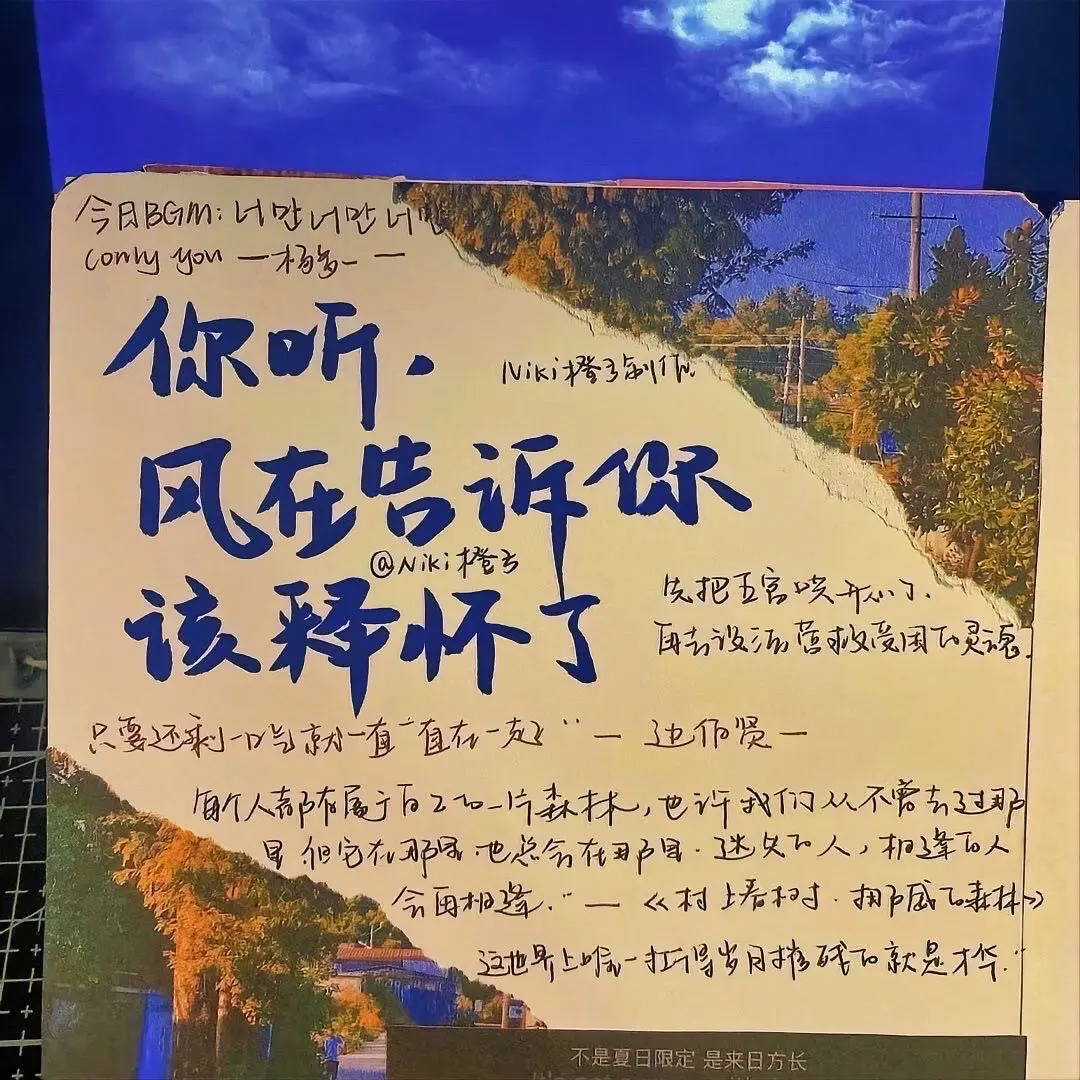 今日BGM: 너만 너만 너만
(only you — 杨多一 —
你听,
Niki橙子制作
风在告诉你
@Niki橙子
该释怀了
先把五官哄开心了.
再去设法营救受困的灵魂.
只要还剩一口气就一直一直在一起" — 边伯贤 —
每个人都有属于自己的一片森林,也许我们从不曾去过那
里 但它在那里.也总会在那里.迷失的人,相逢的人
会再相逢." — 《村上春树.挪威的森林》
这世界上唯一扛得岁月摧残的就是才华."
不是夏日限定 是来日方长